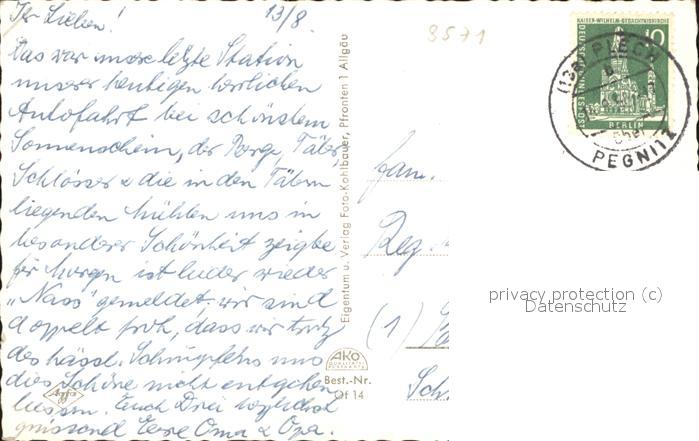 Ihr Lieben!
13/8
3571
Das war unsere letzte Station
unserer heutigen herrlichen
Autofahrt bei schönstem
Sonnenschein, der Berge, Täler,
Schlösser & die in den Tälern
liegenden Mühlen uns in
besonderer Schönheit zeigte
für morgen ist leider wieder
„Nass" gemeldet. wir sind
doppelt froh, dass wir trotz
des hässl. Schnupfens uns
dies Schöne nicht entgehen
liessen. Euch Drei herzlichst
grüssend Eure Oma & Opa.
Eigentum u. Verlag Foto-Kohlbauer, Pfronten 1 Allgäu
AKO
Best.-Nr.
Of 14
Agfa
KAISER-WILHELM-GEDÄCHTNISKIRCHE
10
DEUTSCHE BUNDESPOST
BERLIN
(13a) PLECH
über
PEGNITZ
Fam.
Reg
(1)
Sch
privacy protection (c)
Datenschutz